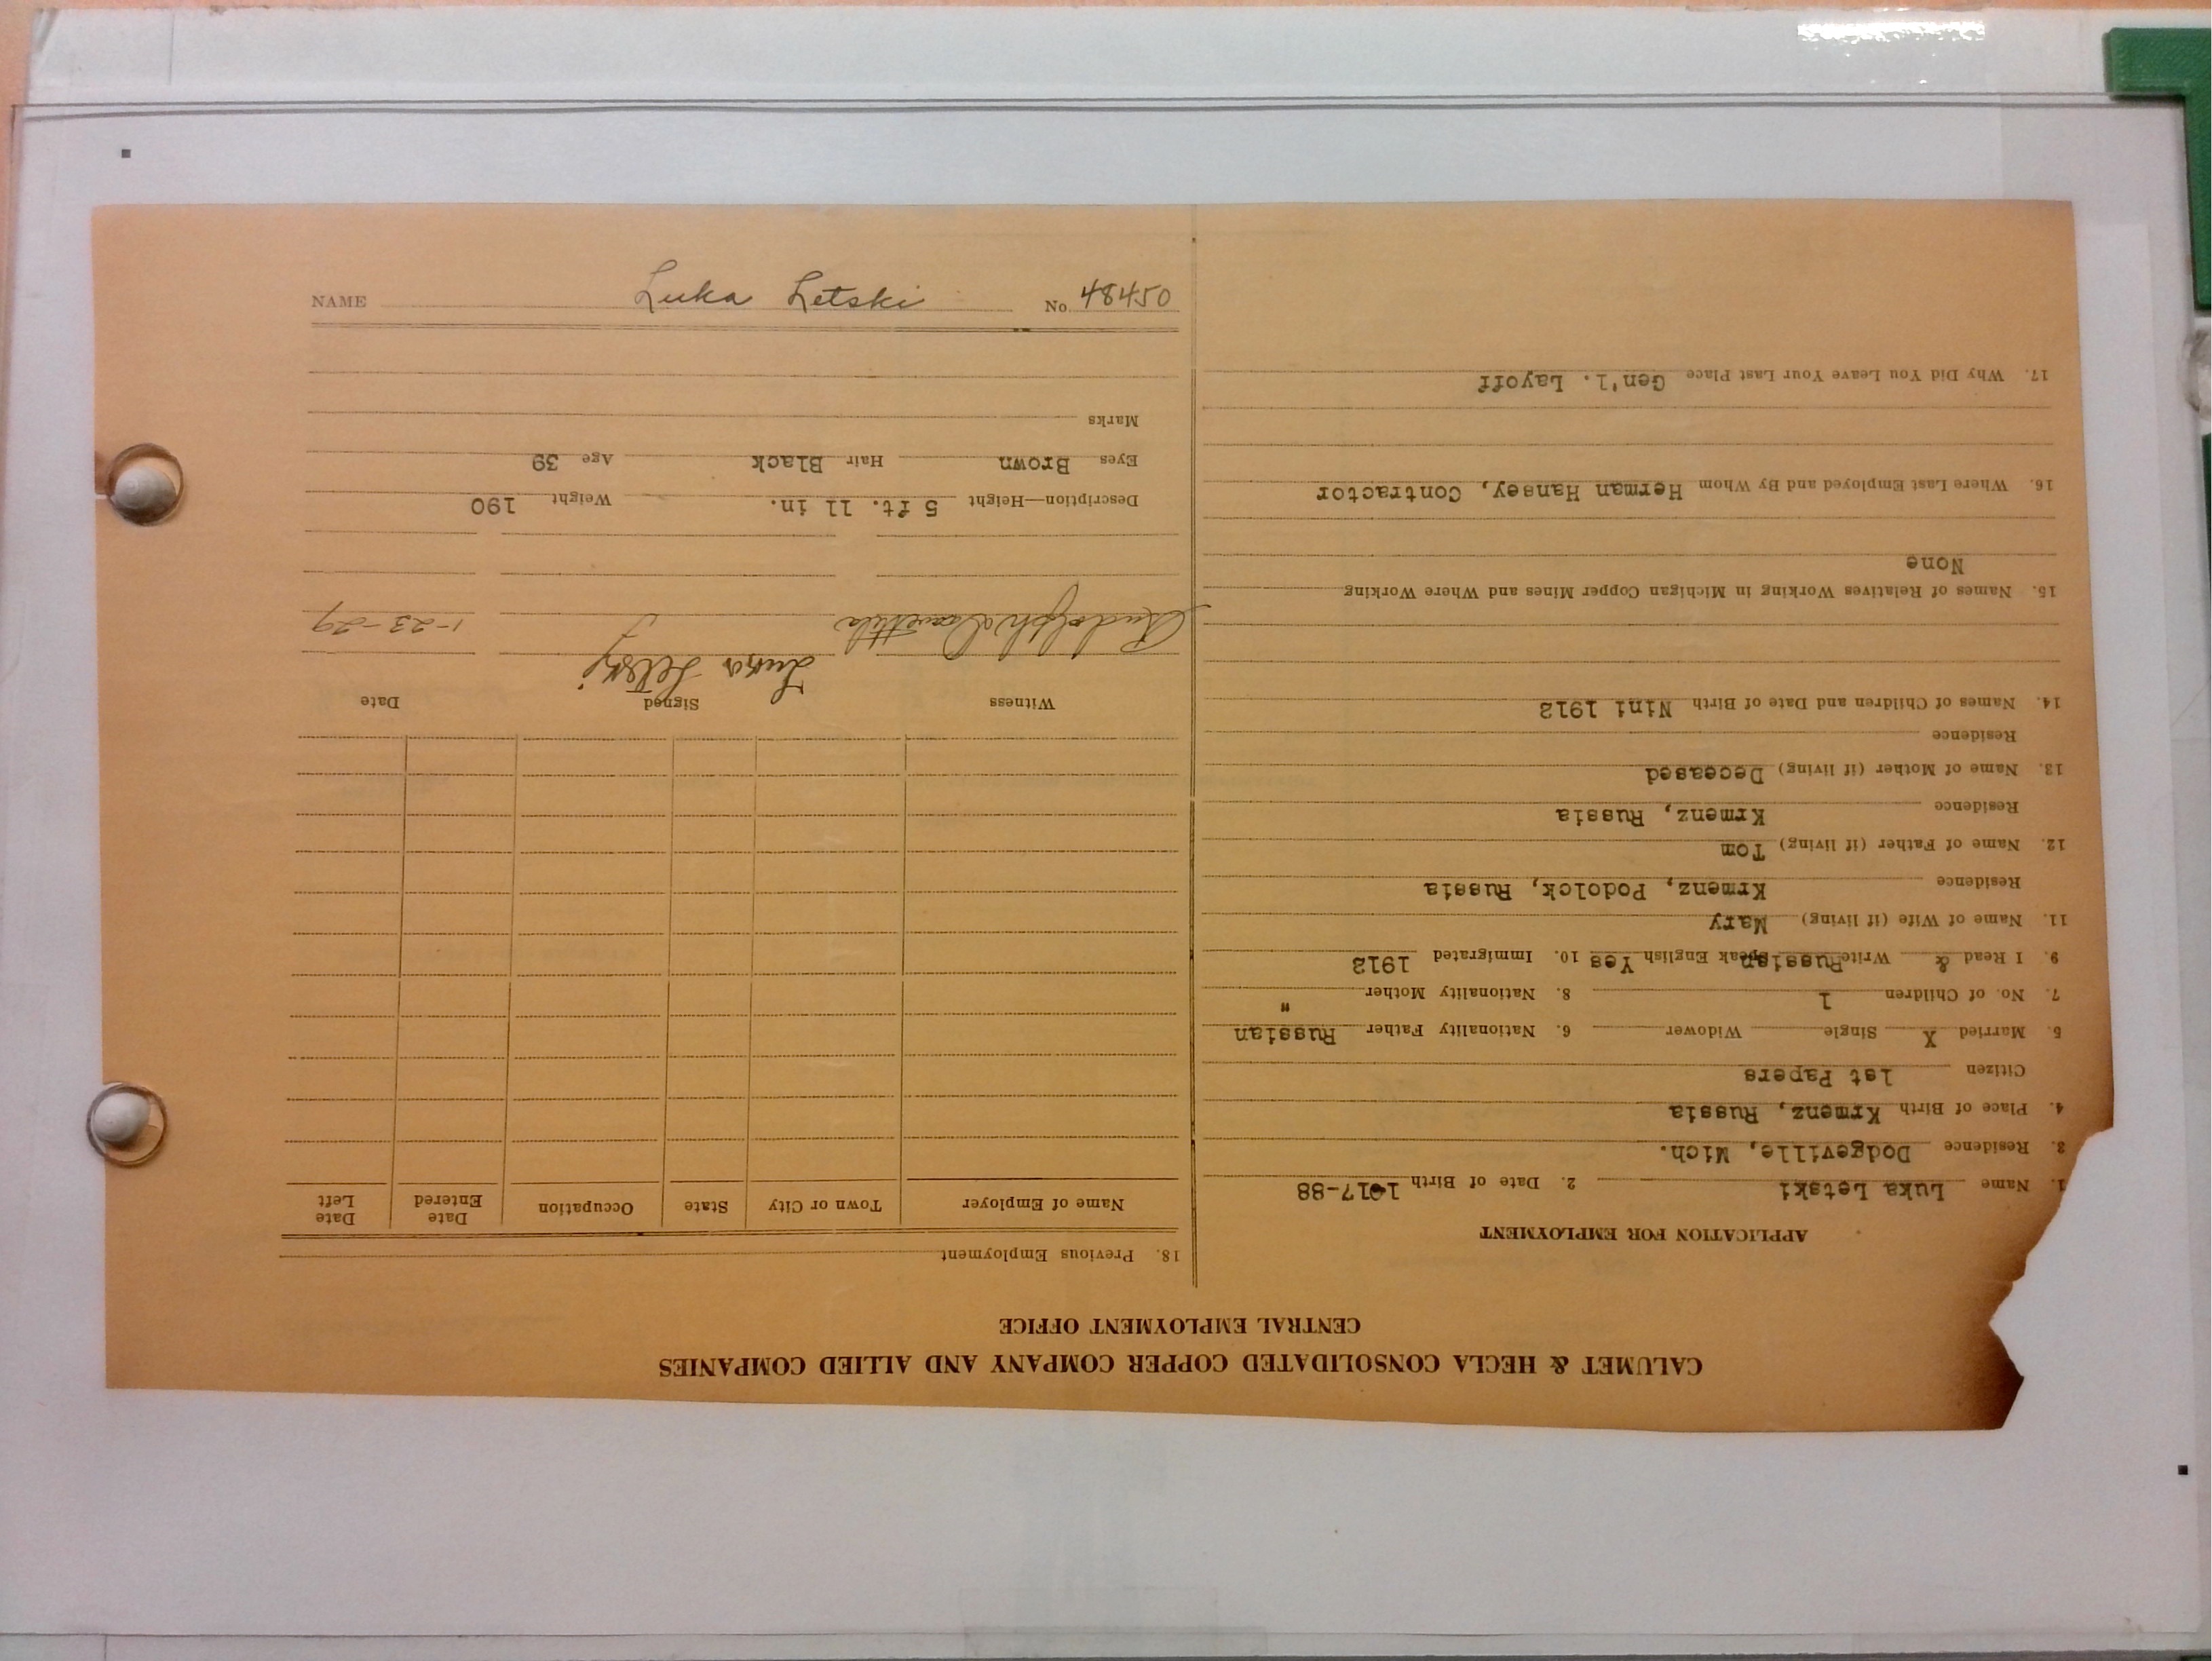 CALUMET & HECLA CONSOLIDATED COPPER COMPANY AND ALLIED COMPANIES
CENTRAL EMPLOYMENT OFFICE
APPLICATION FOR EMPLOYMENT
1. Name Luka Letski 2. Date of Birth 1017-88
3. Residence Dodgeville, Mich.
4. Place of Birth Krmenz, Russia
Citizen 1st Papers
5. Married X Single Widower 6. Nationality Father Russian
7. No. of Children 1 8. Nationality Mother "
9. I Read & Write Russian Speak English Yes 10. Immigrated 1912
11. Name of Wife (if living) Mary
Residence Krmenz, Podolck, Russia
12. Name of Father (if living) Tom
Residence Krmenz, Russia
13. Name of Mother (if living) Deceased
Residence
14. Names of Children and Date of Birth Nini 1912
15. Names of Relatives Working in Michigan Copper Mines and Where Working
None
16. Where Last Employed and By Whom Herman Hansey, Contractor
17. Why Did You Leave Your Last Place Gen'l. Layoff
18. Previous Employment
Name of Employer Town or City State Occupation Date Entered Date Left
Witness Signed Date
Rudolph Luka Letski 1-23-29
Description—Height 5 ft. 11 in. Weight 190
Eyes Brown Hair Black Age 39
Marks
NAME Luka Letski No. 48450